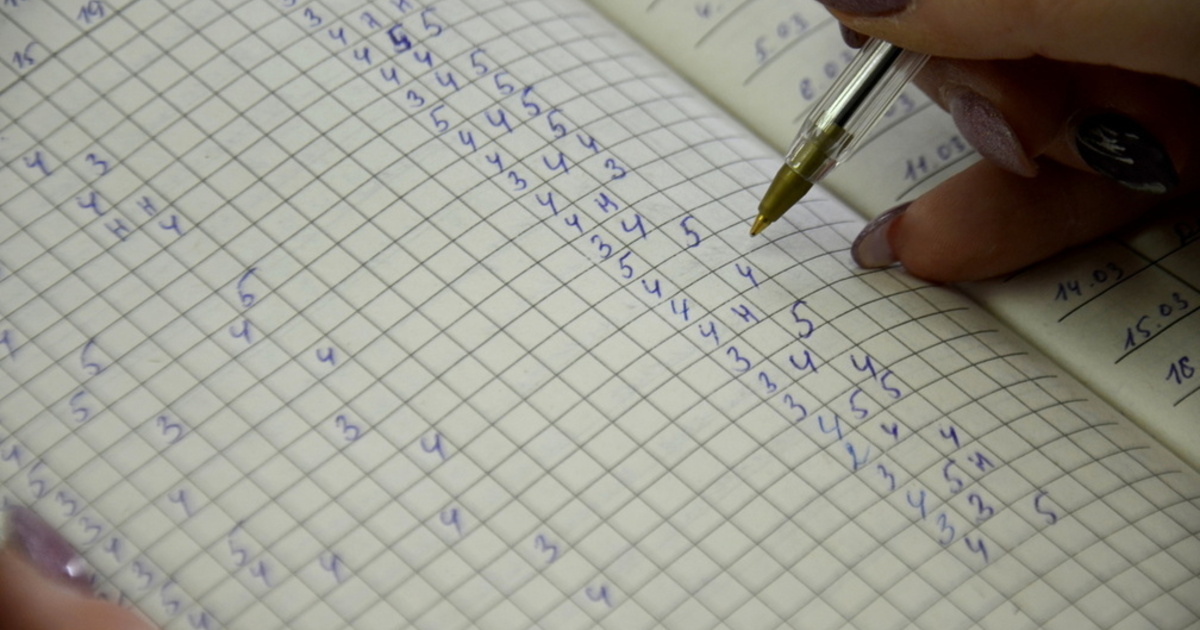 19
15
3
4 н н
4 5 5
4 4
3 4 5
5 5
4 4 5
4 5
3 4 4
4 3
4 н
3 4
5 5
4
4 4
4 н
3 5
3 4
3 4
4 5 5
2 4
3 4
4 5 н
3 3
4 5
4 3
4 н
н 4
5
4
5 4
5
3 3
4 4
4
5
4 4 3
4
5
3
3
3
5
5.03
11.03
14.03
15.03
18